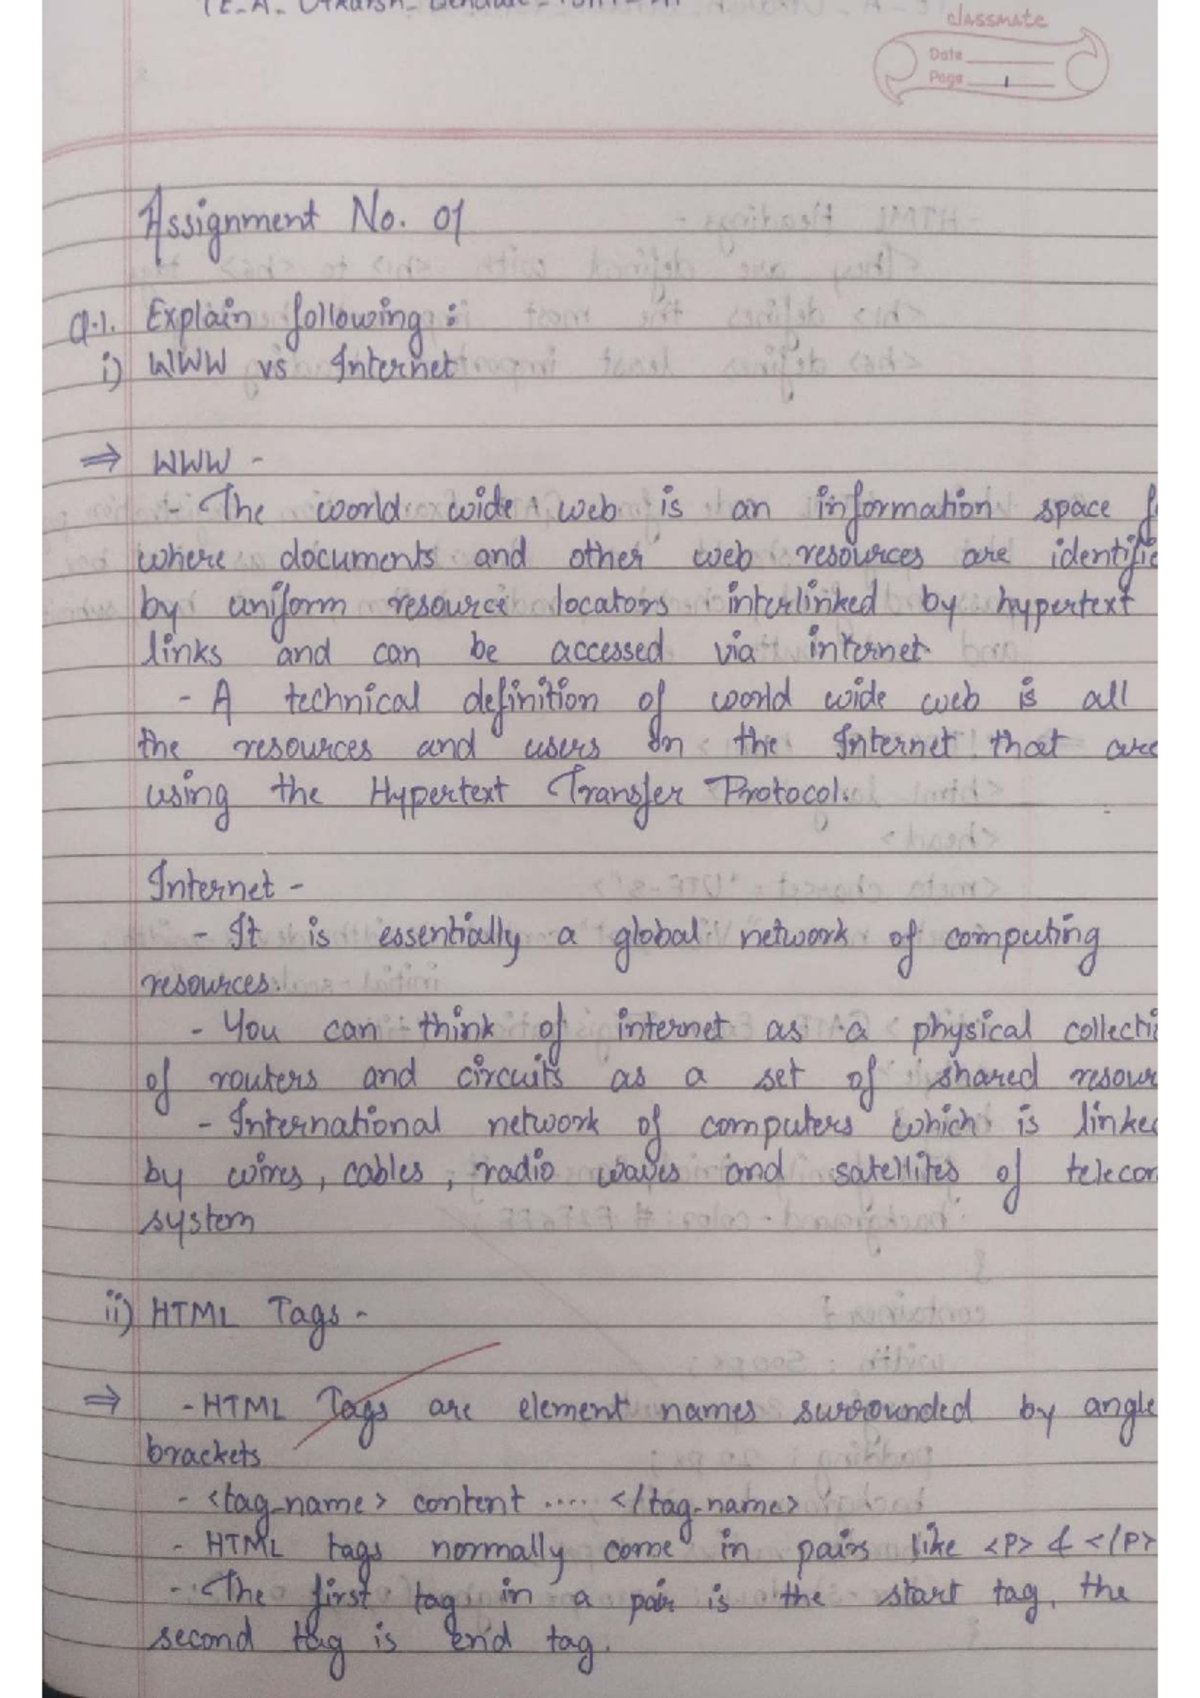 TE-A-
classmate
Date
Page 1
Assignment No. 01
Q.1. Explain following :
i) WWW vs Internet
⇒ WWW -
- The world wide web is an information space
where documents and other web resources are identifie
by uniform resource locators interlinked by hypertext
links and can be accessed via internet
- A technical definition of world wide web is all
the resources and users on the Internet that are
using the Hypertext Transfer Protocol.
Internet -
- It is essentially a global network of computing
resources.
- You can think of internet as a physical collecti
of routers and circuits as a set of shared resour
- International network of computers which is linked
by wires, cables, radio waves and satellites of telecom
system
ii) HTML Tags -
⇒ - HTML Tags are element names surrounded by angle
brackets
- <tag_name> content .... </tag_name>
- HTML tags normally come in pairs like <P> & </P>
- The first tag in a pair is the start tag, the
second tag is end tag.